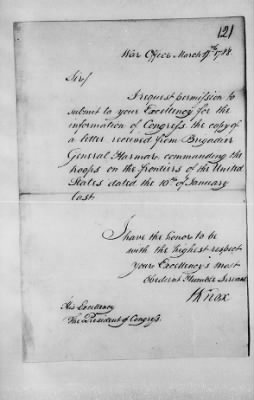 121
War Office March 17th 1788
Sir/
I request permission to
submit to your Excellency for the
information of Congress the copy of
a letter received from Brigadier
General Harmar commanding the
troops on the frontiers of the United
States dated the 10th of January
last
I have the honor to be
with the highest respect
your Excellency's most
Obedient Humble Servant
HKnox
His Excellency
The President of Congress.